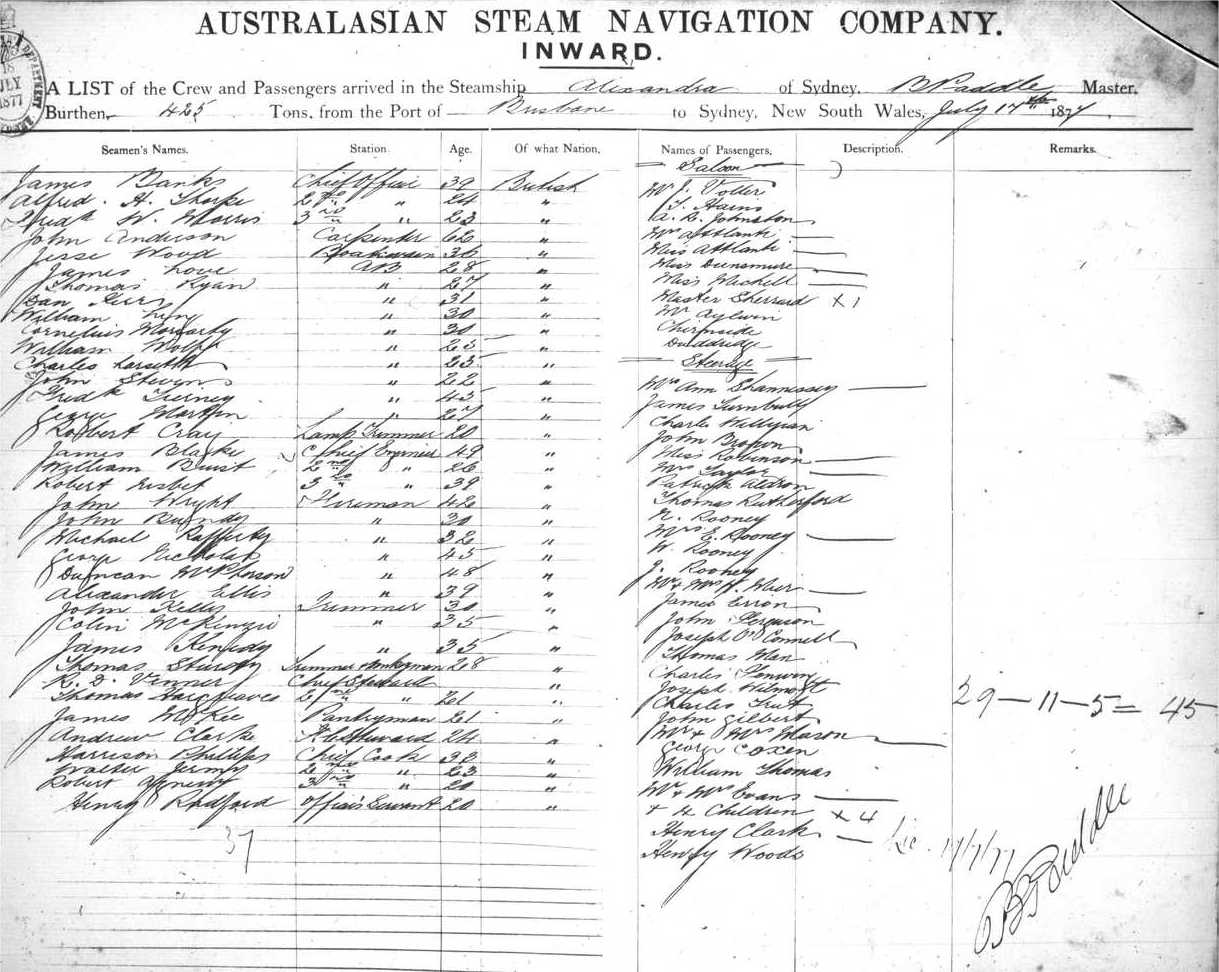 AUSTRALASIAN STEAM NAVIGATION COMPANY.
INWARD.
18
JULY
1877
A LIST of the Crew and Passengers arrived in the Steamship Alexandra of Sydney, B Paddle Master,
Burthen, 425 Tons, from the Port of Brisbane to Sydney, New South Wales, July 17th 1877
Seamen's Names. Station Age. Of what Nation. Names of Passengers. Description. Remarks.
Saloon
James Banks Chief Officer 39 British
Alfred A. Thorpe 2nd " 24 "
Fredk W. Morris 3rd " 23 "
John Anderson Carpenter 62 "
Jesse Wood Boatswain 36 "
James Love AB 28 "
Thomas Ryan " 27 "
Dan " 31 "
William " 30 "
Cornelius Moriarty " 30 "
William Wolfe " 25 "
Charles " 25 "
John Stevens " 22 "
Fredk Tierney " 45 "
George Martin " 27 "
Robert Cray Lamp Trimmer 20 "
James Blake Chief Engineer 49 "
William Buist 2nd " 26 "
Robert Nisbet 3rd " 39 "
John Wright Fireman 42 "
John Bundy " 30 "
Michael Rafferty " 32 "
George Nicholas " 45 "
Duncan McPherson " 48 "
Alexander Ellis " 39 "
John Kelly Trimmer 30 "
Colin McKenzie " 35 "
James Kenedy " 35 "
Thomas Sturdy Trimmer & Donkeyman 28 "
R. D. Venner Chief Steward "
Thomas Hargreaves 2nd " 21 "
James McKee Pantryman 21 "
Andrew Clarke Steward 24 "
Harrison Phillips Chief Cook 32 "
Walter 2nd " 23 "
Robert Agnew 3rd " 20 "
Henry Radford Officers Servant 20 "
37
Mr J. Voller
T. Hains
A. R. Johnston
Mrs
Miss
Miss Dunsmure
Miss Michell
Master Sherrard x 1
Mr Aylwin
Chirnside
Steerage
Mrs Ann Shannessey
James Turnbull
Charles
John Brown
Miss Robinson
Mrs Taylor
Patrick Aldron
Thomas Rutherford
N. Rooney
Mrs E. Rooney
W. Rooney
J. Rooney
Mr & Mrs H. Muir
James Erron
John Ferguson
Joseph O'Connell
Thomas Man
Charles
Joseph Wilmott
Charles Trut
John Gilbert
Mr & Mrs Mason
George Coxen
William Thomas
Mr & Mrs Evans
& 4 Children x 4
Henry Clark
Henry Woods
29 – 11 – 5 = 45
17/7/77
B Paddle